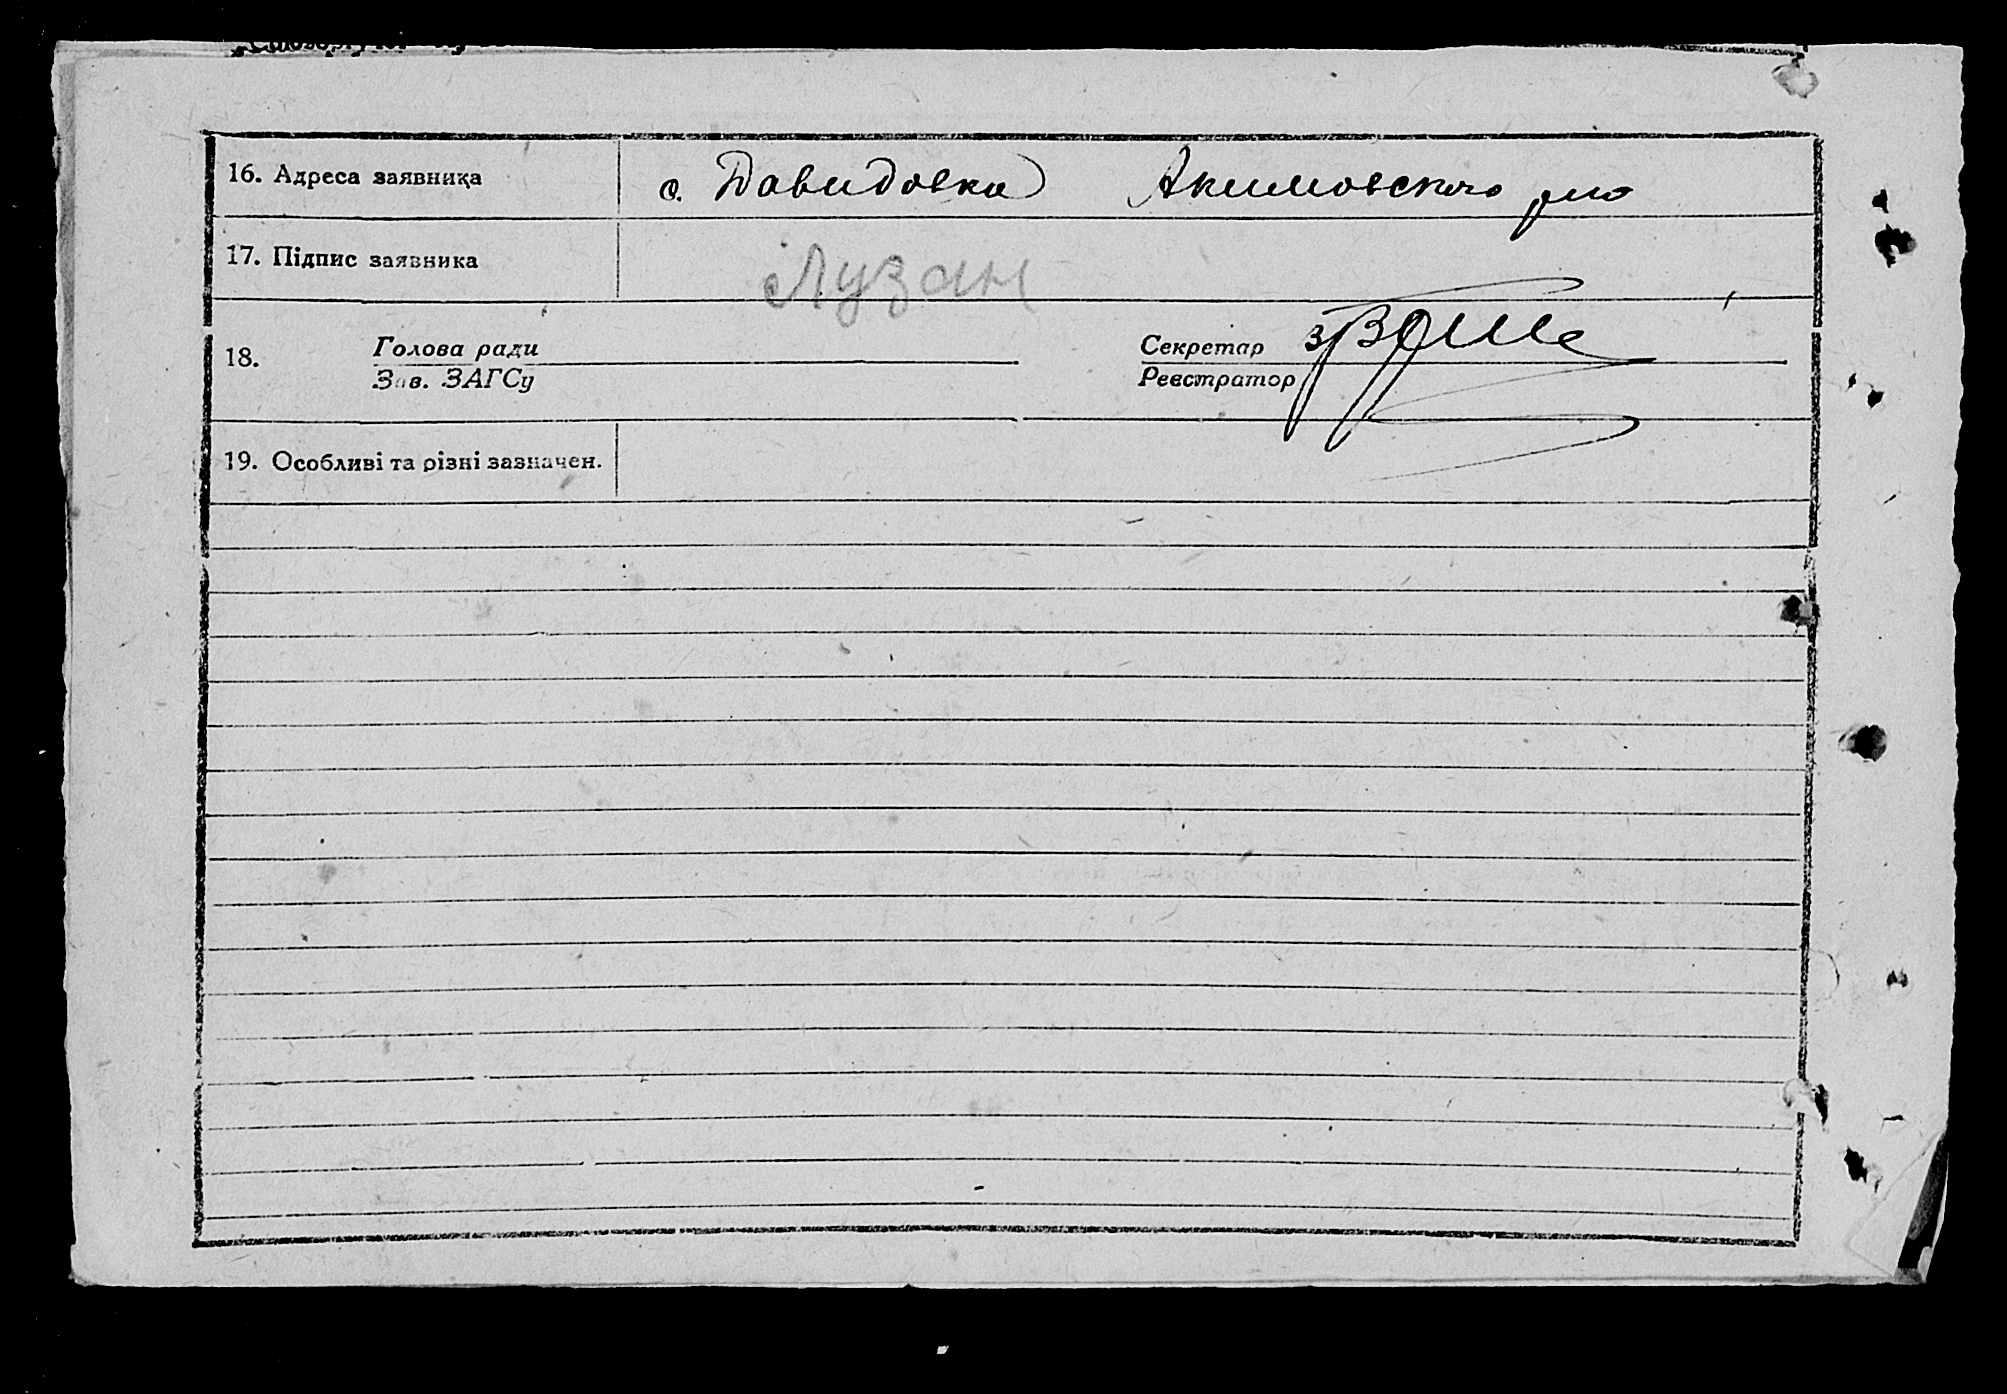 16. Адреса заявника с. Давидовка Акимовского р-на
17. Підпис заявника Лузан
18. Голова ради Секретар
Зав. ЗАГСу Реєстратор
19. Особливі та різні зазначен.